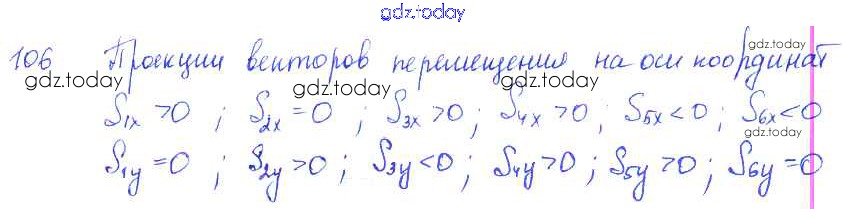 gdz.today
106 Проекции векторов перемещения на оси координат
gdz.today
gdz.today
gdz.today
S1x >0 ; S2x =0 ; S3x >0 ; S4x >0 ; S5x <0 ; S6x <0
gdz.today
S1y =0 ; S2y >0 ; S3y <0 ; S4y >0 ; S5y >0 ; S6y =0